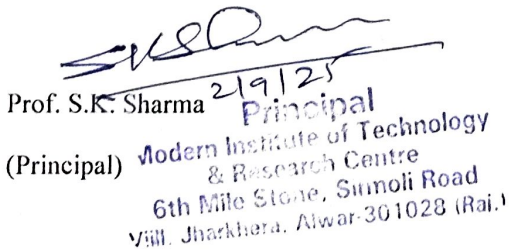 SKSharma
2/9/25
Prof. S.K. Sharma
(Principal)
Principal
Modern Institute of Technology
& Research Centre
6th Mile Stone, Sirmoli Road
Vill. Jharkhera, Alwar-301028 (Raj.)